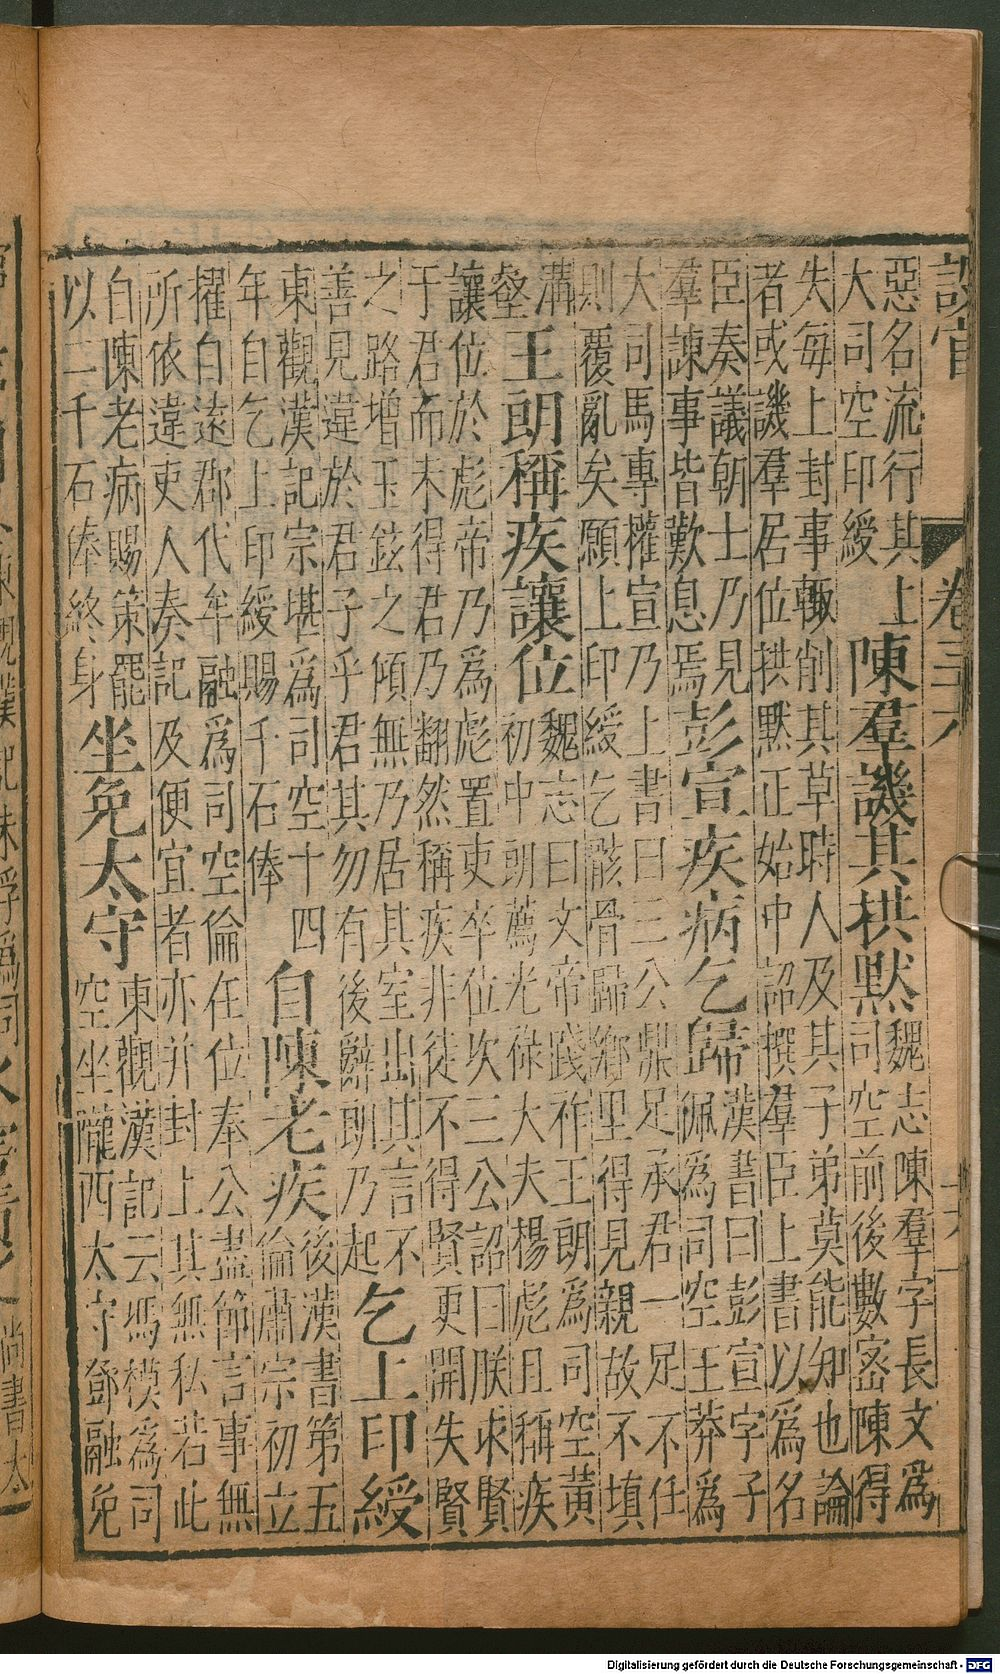 設官　卷三六
惡名流行其上
大司空印綬
陳羣譏其拱默
魏志陳羣字長文為
司空前後數密陳得
失每上封事輙削其草時人及其子弟莫能知也論
者或譏羣居位拱默正始中詔撰羣臣上書以為名
臣奏議朝士乃見
羣諫事皆歎息焉
彭宣疾病乞歸
漢書曰彭宣字子
佩為司空王莽為
大司馬專權宣乃上書曰三公鼎足承君一足不任
則覆亂矣願上印綬乞骸骨歸鄉里得見親故不填
溝
壑
王朗稱疾讓位
魏志曰文帝踐祚王朗為司空黃
初中朗薦光祿大夫楊彪且稱疾
讓位於彪帝乃為彪置吏卒位次三公詔曰朕求賢
于君而未得君乃翻然稱疾非徒不得賢更開失賢
之路增玉鉉之傾無乃居其室出其言不
善見違於君子乎君其勿有後辭朗乃起
乞上印綬
東觀漢記宗堪為司空十四
年自乞上印綬賜千石俸
自陳老疾
後漢書第五
倫肅宗初立
擢自遠郡代牟融為司空倫在位奉公盡節言事無
所依違吏人奏記及便宜者亦并封上其無私若此
自陳老病賜策罷
以二千石俸終身
坐免太守
東觀漢記云馮模為司
空坐隴西太守鄧融免
Digitalisierung gefördert durch die Deutsche Forschungsgemeinschaft - DFG